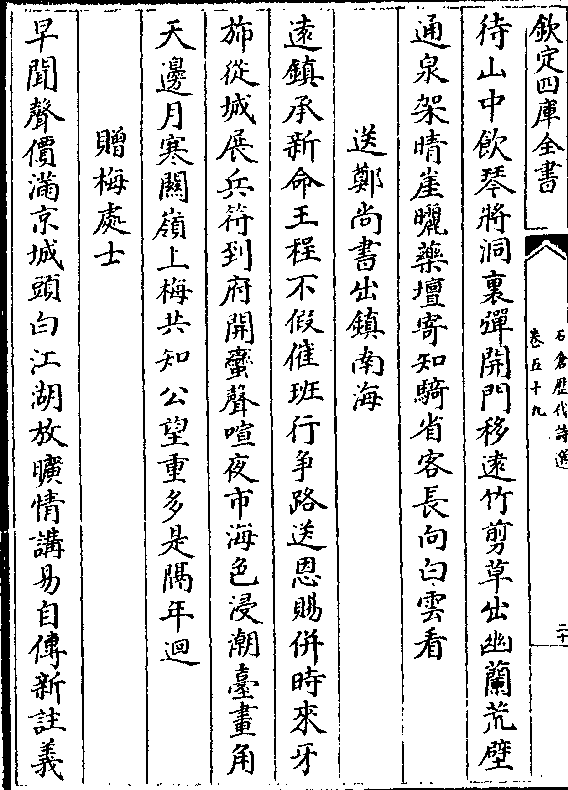 欽定四庫全書
石倉歷代詩選
卷五十九
二十
待山中飲琴將洞裏彈開門移遠竹剪草出幽蘭荒壁
通泉架晴崖曬藥壇寄知騎省客長向白雲看
送鄭尚書出鎮南海
遠鎮承新命王程不假催班行爭路送恩賜併時來牙
斾從城展兵符到府開蠻聲喧夜市海色浸潮臺畫角
天邊月寒關嶺上梅共知公望重多是隔年迴
贈梅處士
早聞聲價滿京城頭白江湖放曠情講易自傳新註義